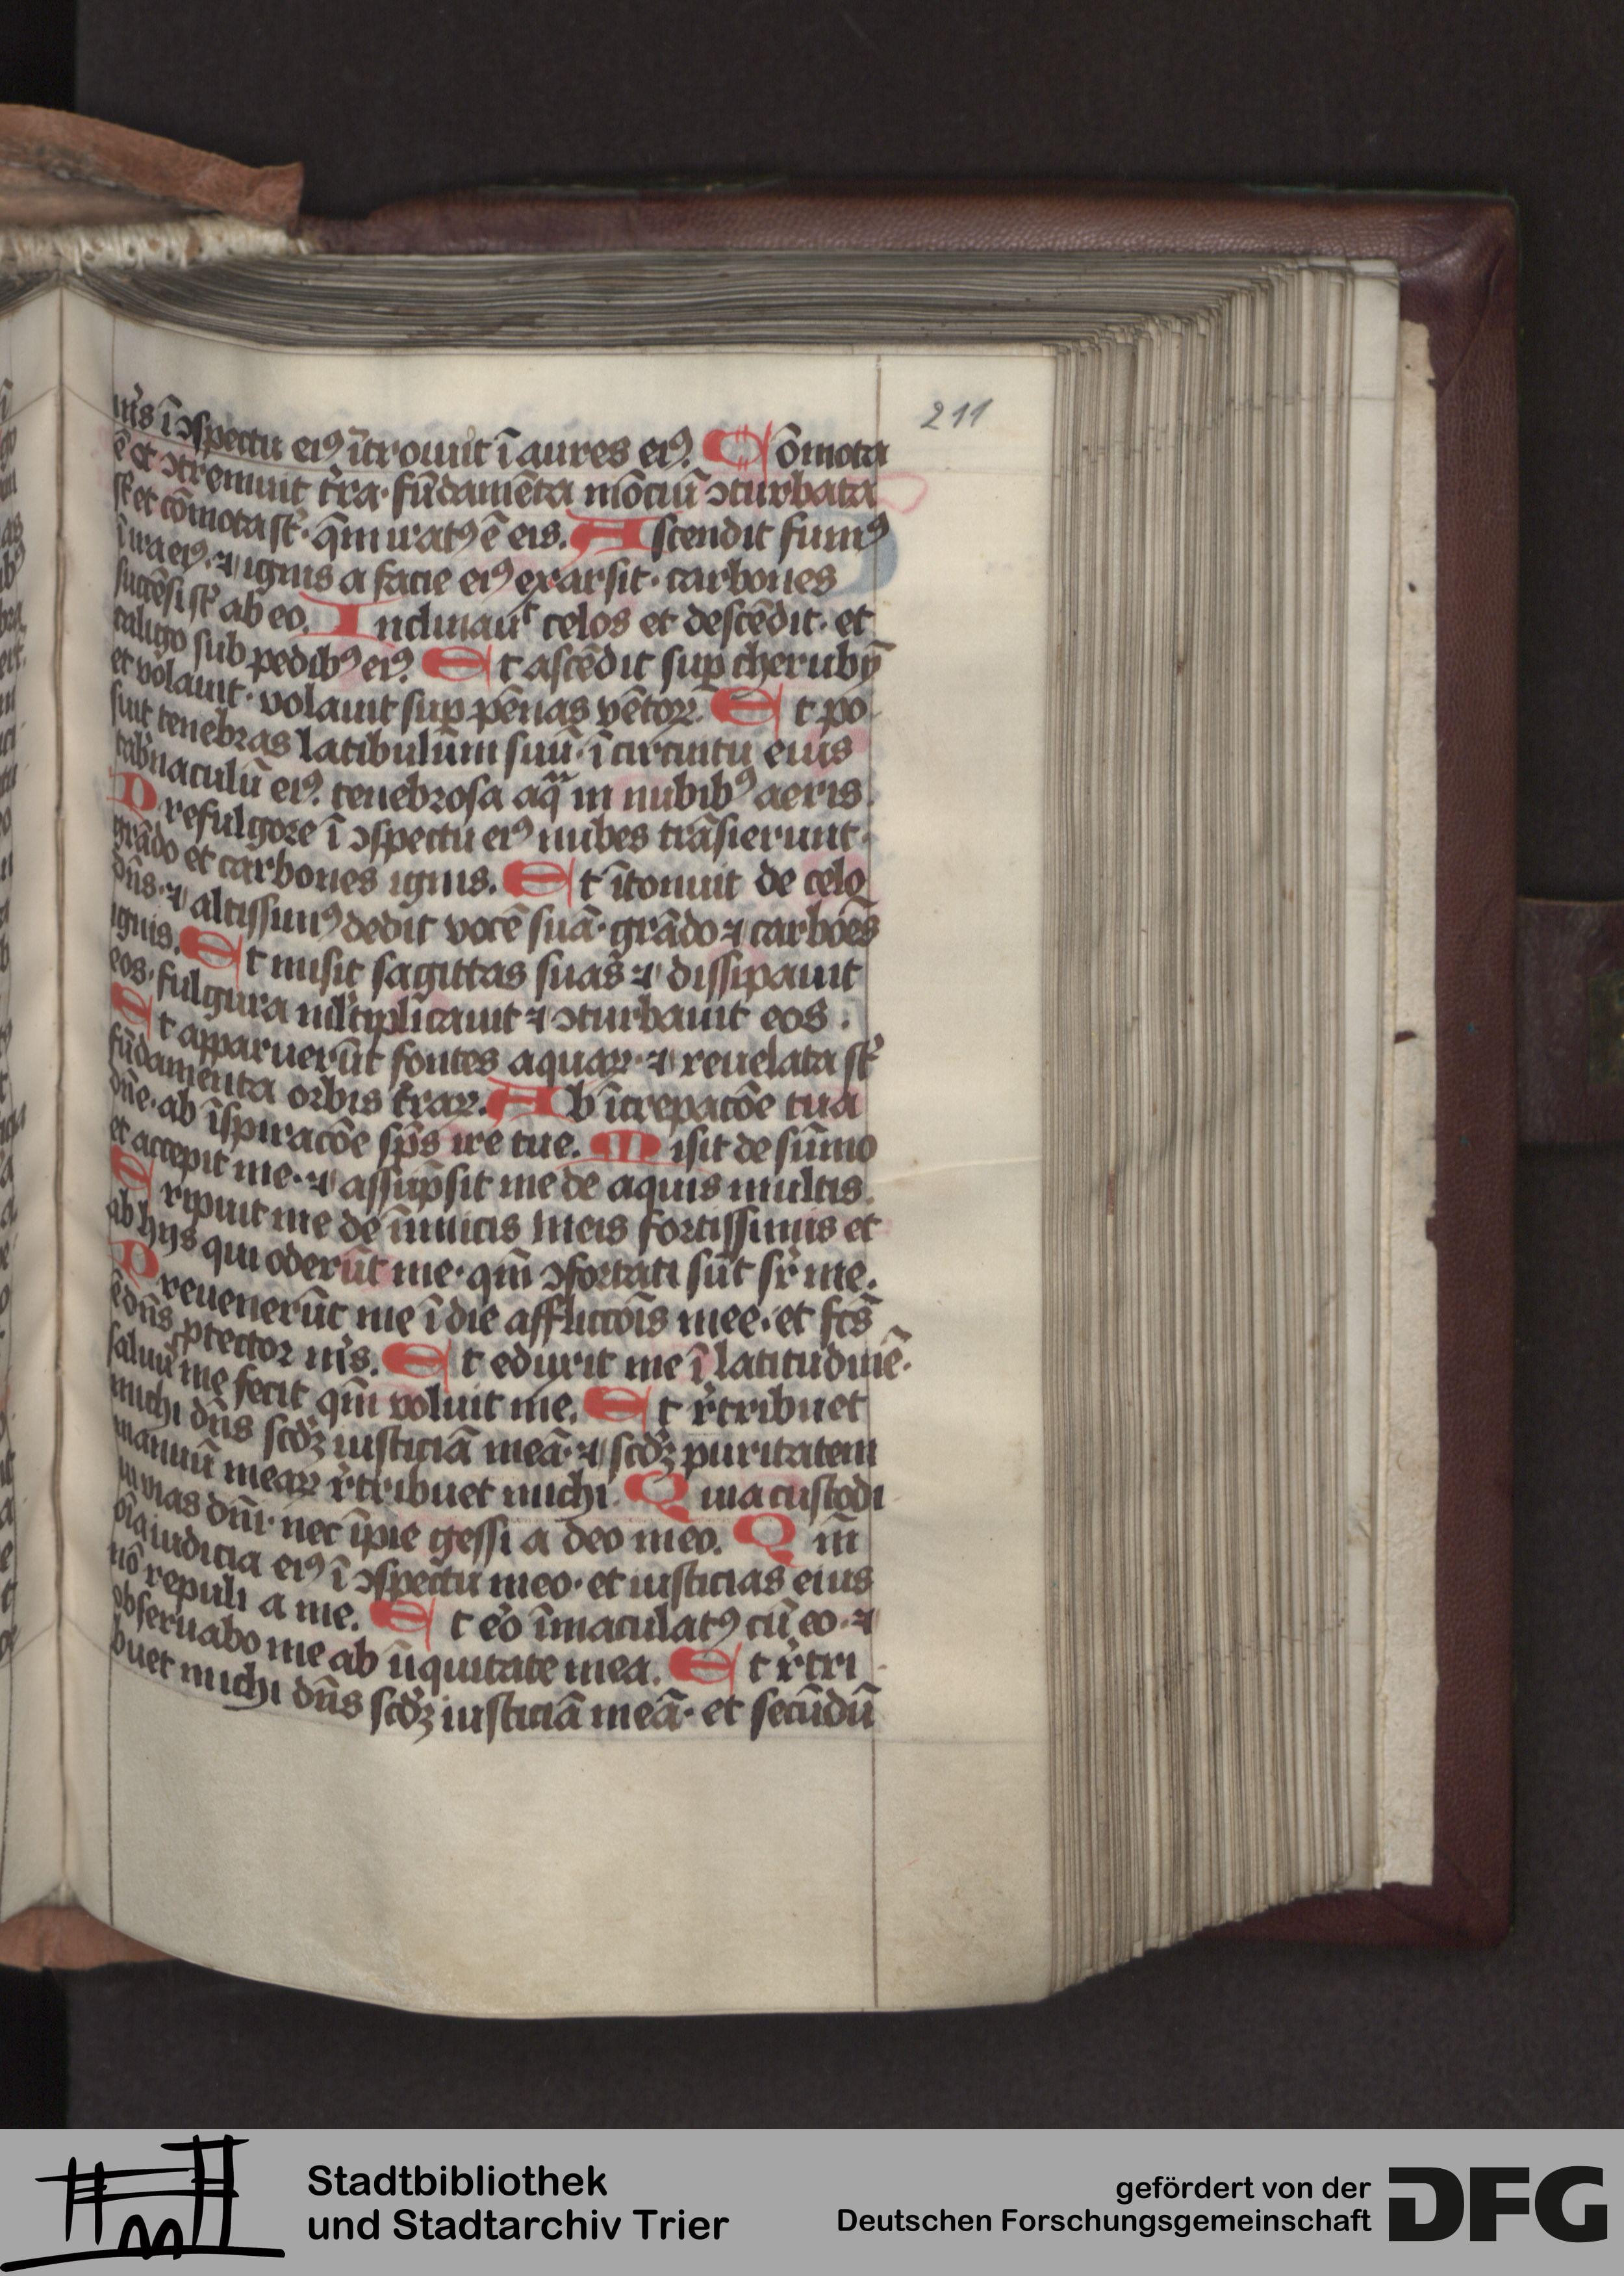 211
ms̄ ī ꝯspectu eiꝰ ītroiuit ī aures eiꝰ. Cōmota
ē et ꝯtremuit t̄ra· fūdamēta mōciū ꝯturbata
st̄ et cōmota st̄· qm̄ iratꝰ ē eis. Ascendit fumꝰ
ī ira eiꝰ· ⁊ ignis a facie eiꝰ exarsit· carbones
succēsi st̄ ab eo. Inclinauͭ celos et descēdit· et
caligo sub pedibꝰ eiꝰ. Et ascēdit suꝑ cherubȳ
et volauit· volauit suꝑ pēnas vētoꝝ. Et po
suit tenebras latibulum suū· ī circuitu eius
tab̄naculū eiꝰ. tenebrosa aq̄ in nubibꝰ aeris.
Prefulgore ī ꝯspectu eiꝰ nubes trāsierunt·
grādo et carbones ignis. Et ītonuit de celo
dn̄s· ⁊ altissimꝰ dedit vocē suā· grādo ⁊ carbōes
ignis. Et misit sagittas suas ⁊ dissipauit
eos· fulgura ml̄tiplicauit ⁊ ꝯturbauit eos.
Et apparuerūt fontes aquaꝝ· ⁊ reuelata st̄
fūdamenta orbis t̄raꝝ. Ab īcrepacōe tua
dn̄e· ab īspiracōe sp̄s ire tue. Misit de sūmo
et accepit me· ⁊ assūpsit me de aquis multis.
Eripuit me de īimicis meis fortissimis et
ab hijs qui oderūt me· qm̄ ꝯfortati sūt sr̄ me.
Preuenerūt me ī die afflictōis mee· et fc̄s
ē dn̄s ꝓtector ms̄. Et eduxit me ī latitudinē·
saluū me fecit qm̄ voluit me. Et r̄tribuet
michi dn̄s scd̄ꝫ iusticiā meā· ⁊ scd̄ꝫ puritatem
manuū meaꝝ r̄tribuet michi. Quia custodi
ui vias dn̄i· nec īpie gessi a deo meo. Qm̄
oīa iudicia eiꝰ ī ꝯspectu meo· et iusticias eius
nō repuli a me. Et eͦo īmaculatꝰ cū eo· ⁊
obseruabo me ab īiquitate mea. Et r̄tri
buet michi dn̄s scd̄ꝫ iusticiā meā· et secūdū
Stadtbibliothek
und Stadtarchiv Trier
gefördert von der
Deutschen Forschungsgemeinschaft
DFG